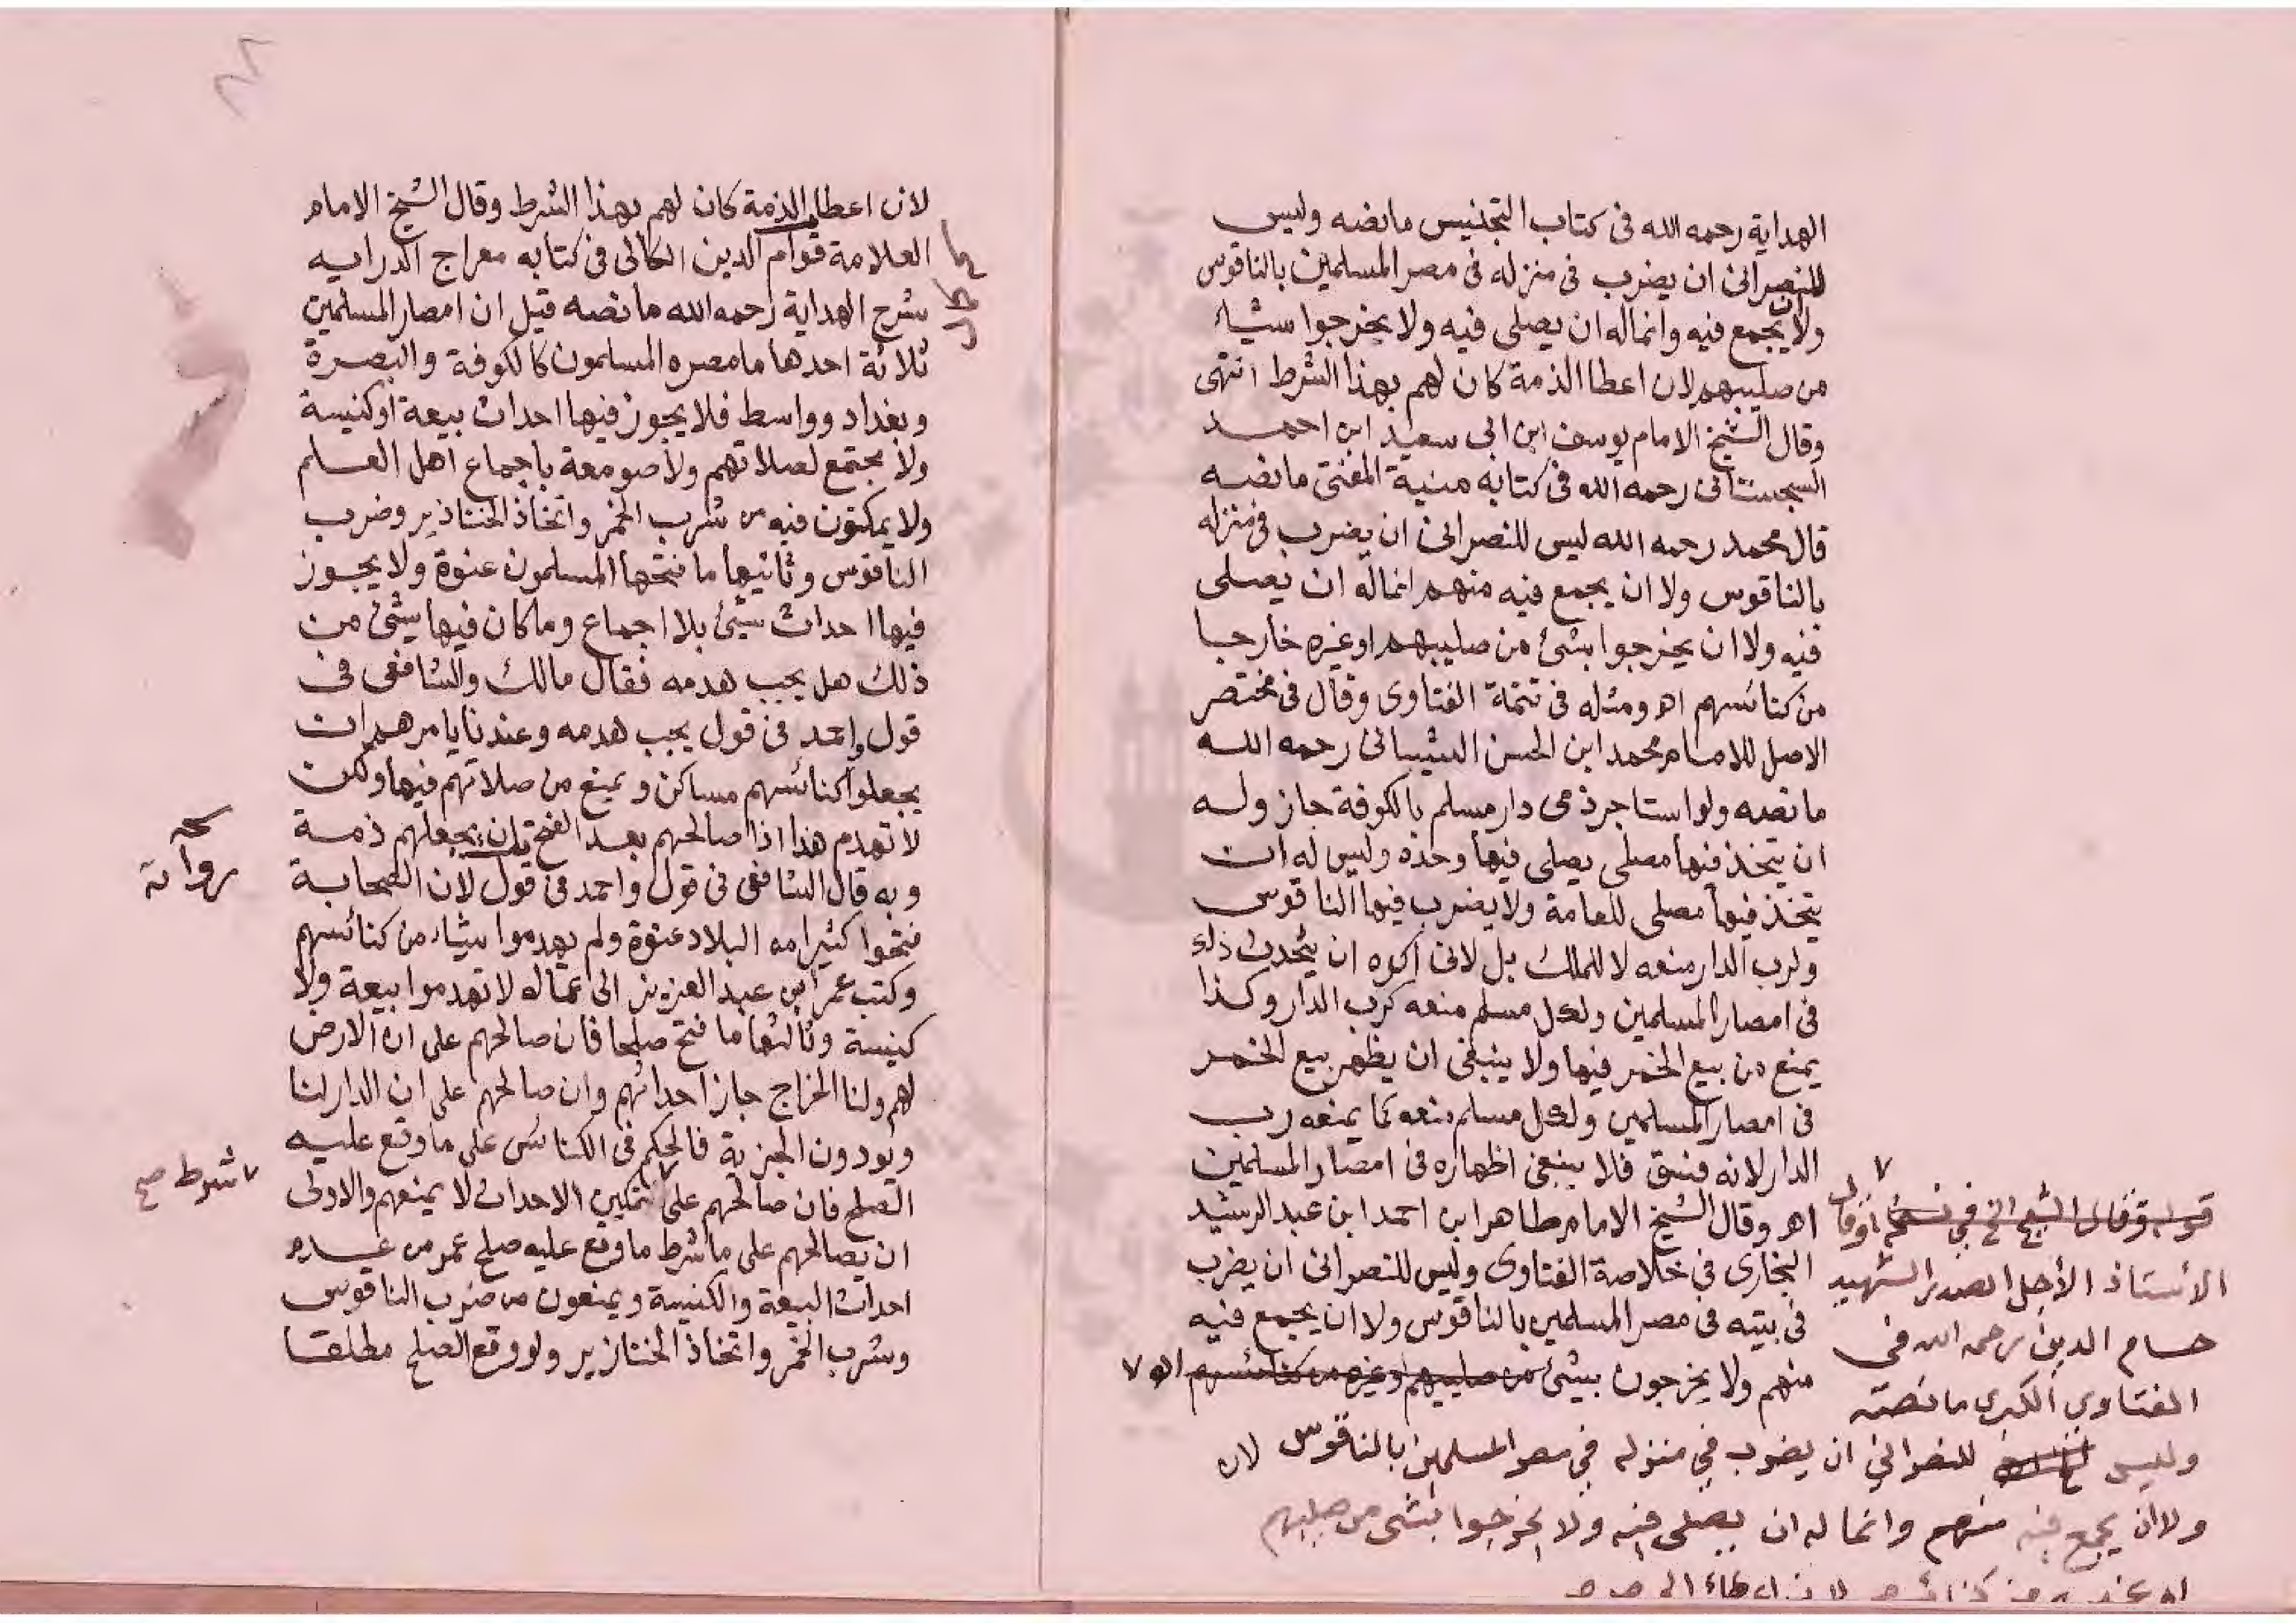 الهداية رحمه الله فى كتاب التجنيس مانصه وليس
للنصرانى ان يضرب فى منزله فى مصر المسلمين بالناقوس
ولا ان يجمع فيه وانماله ان يصلى فيه ولا يخرجوا شيأ
من صليبهم لان اعطا الذمة كان لهم بهذا الشرط انتهى
وقال الشيخ الامام يوسف ابن ابى سعيد ابن احمد
السجستانى رحمه الله فى كتابه منية المفتى مانصه
قال محمد رحمه الله ليس للنصرانى ان يضرب فى منزله
بالناقوس ولا ان يجمع فيه منهم انماله ان يصلى
فيه ولا ان يخرجوا بشئ من صليبهم او غيره خارجا
من كنائسهم اهـ ومثله فى تتمة الفتاوى وقال فى مختصر
الاصل للامام محمد ابن الحسن الشيبانى رحمه الله
مانصه ولو استاجر ذمى دار مسلم بالكوفة جاز وله
ان يتخذ فيها مصلى يصلى فيها وحده وليس له ان
يتخذ فيها مصلى للعامة ولا يضرب فيها الناقوس
ولرب الدار منعه لا للملك بل لانى اكره ان يحدث ذلك
فى امصار المسلمين ولكل مسلم منعه كرب الدار وكذا
يمنع من بيع الخمر فيها ولا ينبغى ان يظهر بيع الخمر
فى امصار المسلمين ولكل مسلم منعه كما يمنعه رب
الدار لانه فسق فلا ينبغى اظهاره فى امصار المسلمين
اهـ وقال الشيخ الامام طاهر ابن احمد ابن عبد الرشيد
البخارى فى خلاصة الفتاوى وليس للنصرانى ان يضرب
فى بيته فى مصر المسلمين بالناقوس ولا ان يجمع فيه
منهم ولا يخرجون بشئ من صليبهم او غيره من كنائسهم اهـ ٧
قوله وقال الشيخ الخ في نسخة وقال
الأستاذ الأجل الصدر الشهيد
حسام الدين رحمه الله في
الفتاوي الكبري ما نصّه
وليس للنصراني ان يضرب في منزله في مصر المسلمين بالناقوس لان
ولا ان يجمع فيه منهم وانما له ان يصلى فيه ولا يخرجوا بشى من صليبهم
لان اعطا الذمة كان لهم بهذا الشرط وقال الشيخ الامام
العلامة قوام الدين الكاكى فى كتابه معراج الدرايه
شرح الهداية رحمه الله مانصه قيل ان امصار المسلمين
ثلاثة احدها مامصره المسلمون كالكوفة والبصرة
وبغداد وواسط فلا يجوز فيها احداث بيعة او كنيسة
ولا مجتمع لصلاتهم ولا صومعة باجماع اهل العلم
ولا يمكنون فيه من شرب الخمر واتخاذ الخنازير وضرب
الناقوس وثانيها ما فتحها المسلمون عنوة ولا يجوز
فيها احداث شئ بلا اجماع وما كان فيها شئ من
ذلك هل يجب هدمه فقال مالك والشافعى فى
قول واحمد فى قول يجب هدمه وعندنا يامرهم ان
يجعلوا كنائسهم مساكن ويمنع من صلاتهم فيها ولكن
لا تهدم هذا اذا صالحهم بعد الفتح بان يجعلهم ذمة
وبه قال الشافعى فى قول واحمد فى قول لان الصحابة
فتحوا كثيرا من البلاد عنوة ولم يهدموا شيأ من كنائسهم
وكتب عمر ابن عبد العزيز الى عماله لا تهدموا بيعة ولا
كنيسة وثالثها ما فتح صلحا فان صالحهم على ان الارض
لهم ولنا الخراج جاز احداثهم وان صالحهم على ان الدار لنا
ويودون الجزية فالحكم فى الكنائس على ما وقع عليه
الصلح فان صالحهم على تمكين الاحداث لا يمنعهم والاولى
٧ شرط صح
ان يصالحهم على ما شرط ما وقع عليه صلح عمر من عدم
احداث البيعة والكنيسة ويمنعون من ضرب الناقوس
وشرب الخمر واتخاذ الخنازير ولو وقع الصلح مطلقا